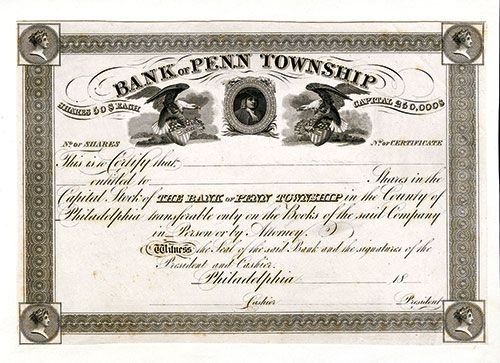 BANK OF PENN TOWNSHIP
SHARES 50 $ EACH
CAPITAL 250,000$
No. OF SHARES
No. OF CERTIFICATE
This is to Certify that
entitled to Shares in the
Capital Stock of THE BANK OF PENN TOWNSHIP in the County of
Philadelphia transferable only on the Books of the said Company
in Person or by Attorney.
Witness the Seal of the said Bank and the signatures of the
President and Cashier.
Philadelphia 18
Cashier President